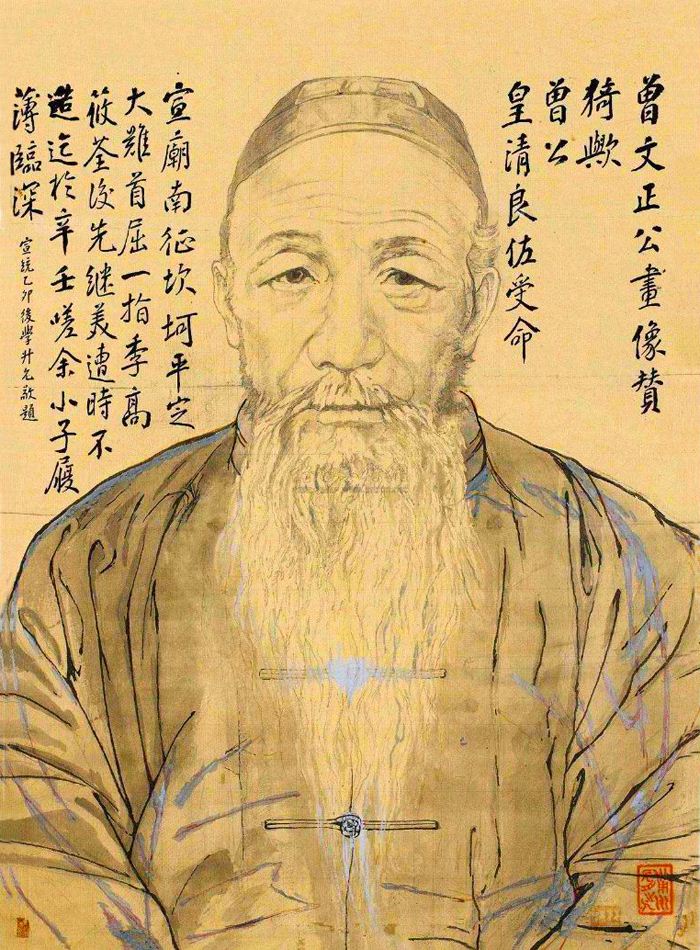 曾文正公畫像贊
猗歟
曾公
皇清良佐受命
宣廟南征坎坷平定
大難首屈一指季高
筱荃後先継美遭時不
造迄於辛壬嗟余小子履
薄臨深
宣統乙卯後學升允敬題